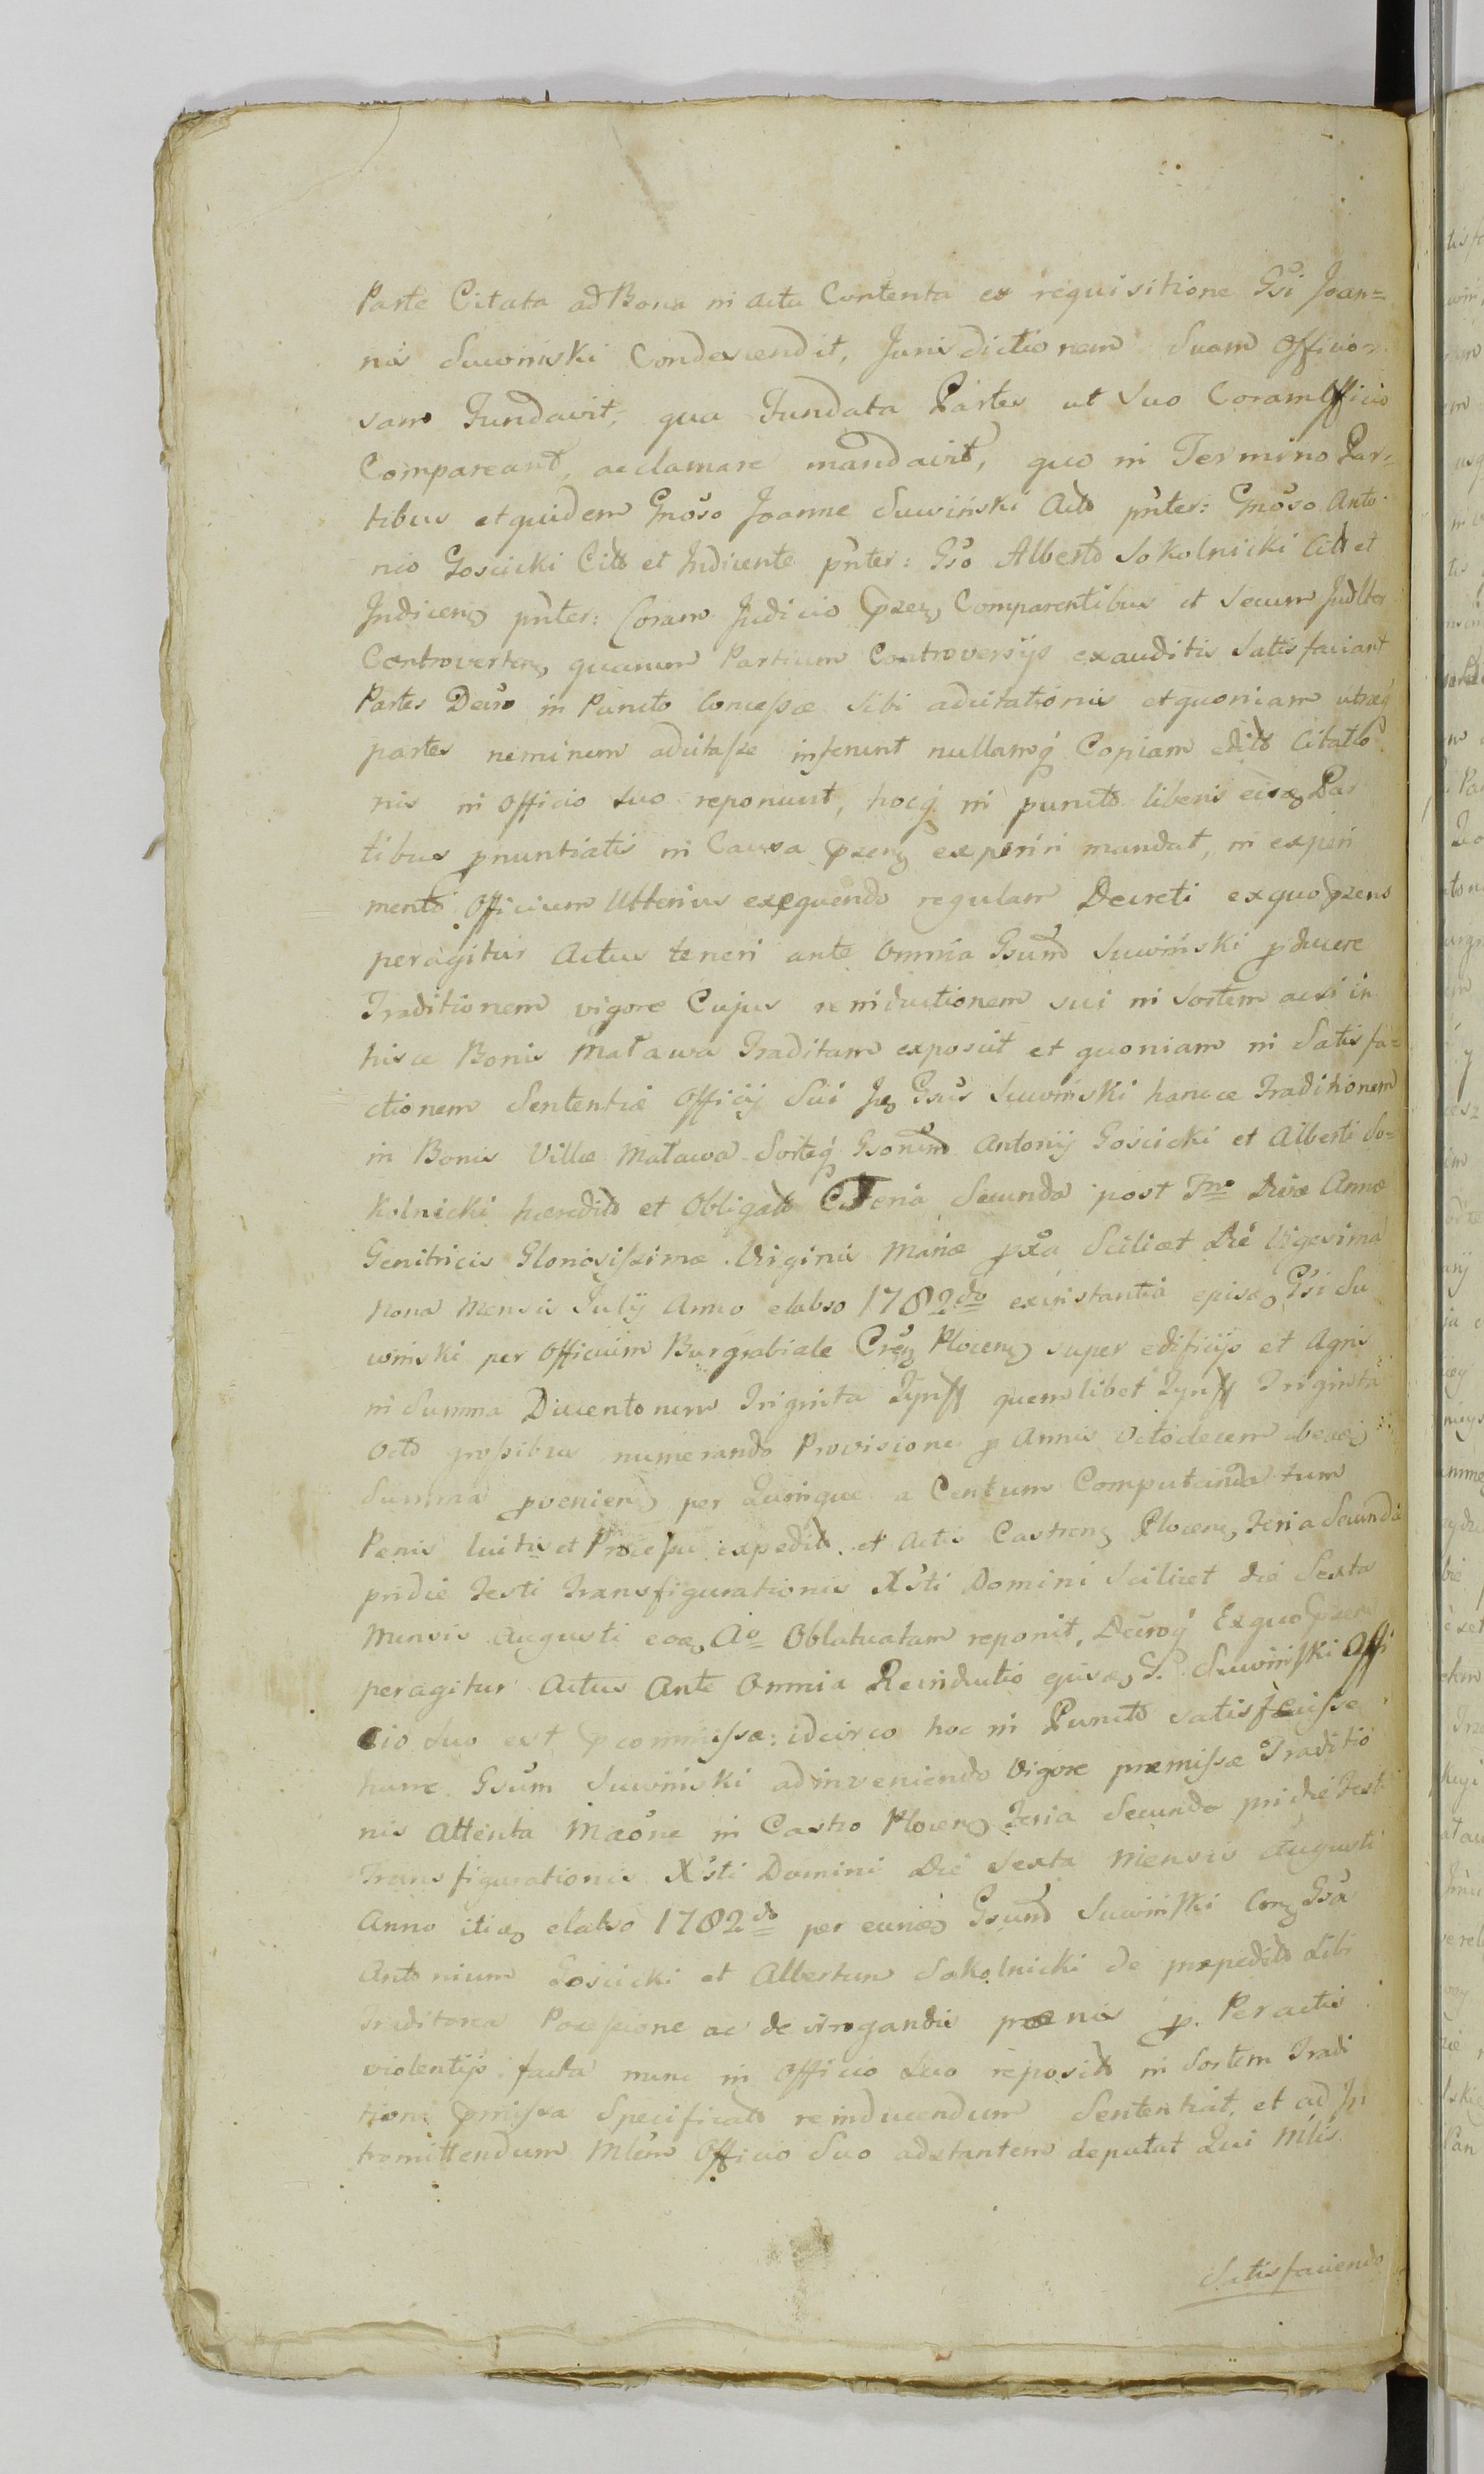 Parte Citata ad Bona in actu Contenta ex requisitione Gsi Joan=
nis Suwinski Condescendit, Jurisdictionem Suam Officio=
sam Fundavit, qua Fundata Partes ut Suo Coram Officio
Compareant, acclamare mandavit, quo in Termino Par=
tibus et quidem Gnoso Joanne Suwiński Acto pnter: Gnoso Anto
nio Gościcki Citto et Indicente pnter: Gso Alberto Sokolnicki Citt et
Indicen pnter: Coram Judicio pzen Comparentibus et Secum Judlter
Controverten quarum Partium Controversijs exauditis Satisfaciant
Partes Decro in Puncto Concessæ Sibi adcitationis et quoniam utræq
partes neminem adcitasse inferunt nullamq Copiam edito Citatio
nis in Officio Suo reponunt, hocq in puncto liberis eisq Par
tibus pnuntiatis in Causa pzen experiri mandat, in experi
mento Officium Ulterius exequendo regulam Decreti ex quo pzens
peragitur Actus teneri ante omnia Gsum Suwiński pducere
Traditionem vigore Cujus reinductionem sui in Sortem acsi in
hisce Bonis Matawa Traditam exposcit et quoniam in Satisfa=
ctionem Sententiæ Officij Sui Gsus Suwiński hancce Traditionem
in Bonis Villæ Matawa Sorteq Gsorum Antonij Gościcki et Alberti So=
kolnicki hæredito et Obligato Feria Secunda post Fm Divæ Annæ
Genitricis Gloriosissimæ Virginis Mariæ pxa Scilicet Die Vigesima
nona Mensis Julij Anno elabso 1782do ex instantia ejusq Gsi Su
winski per Officium Burgrabiale Plocen super edificijs et Agris
in Summa Ducentorum Triginta Tynff quemlibet Tynff Triginta
Octo grossibus numerando Provisione p Annis Octodecem abeaq
Summa pvenien per Quinque a Centum Computanda tum
Penis luitis et Processu expedito et Actis Castren Plocen Feria Secunda
pridie Festi Transfigurationis Xsti Domini Scilicet die Sexta
Mensis Augusti eoq Ao Oblatuatam reponit, Decroq Ex quo pzens
peragitur Actus Ante Omnia Reinductio ejusq G. Suwiński Offi
cio Suo est pcommissa: idcirco hoc in Puncto satisfecisse
hunc Gsum Suwiński adinveniendo Vigore præmissæ Traditio
nis Attenta Maone in Castro Plocen Feria Secunda pridie Festi
Transfigurationis Xsti Domini Die Sexta Mensis Augusti
Anno itiq elabso 1782do per eunq Gsum Suwiński Con Gsa
Antonium Gościcki et Albertum Sokolnicki de præpedito Sibi
Traditorea Possessione ac de irrogandis pœnis p. Peractis
violentijs facta nunc in Officio Suo reposito in Sortem Tradi
tione pmissa Specificato reinducendum Sententiat, et ad In
tromittendum Mlem Officio Suo adstantem deputat Qui Mlis
Satisfaciendo